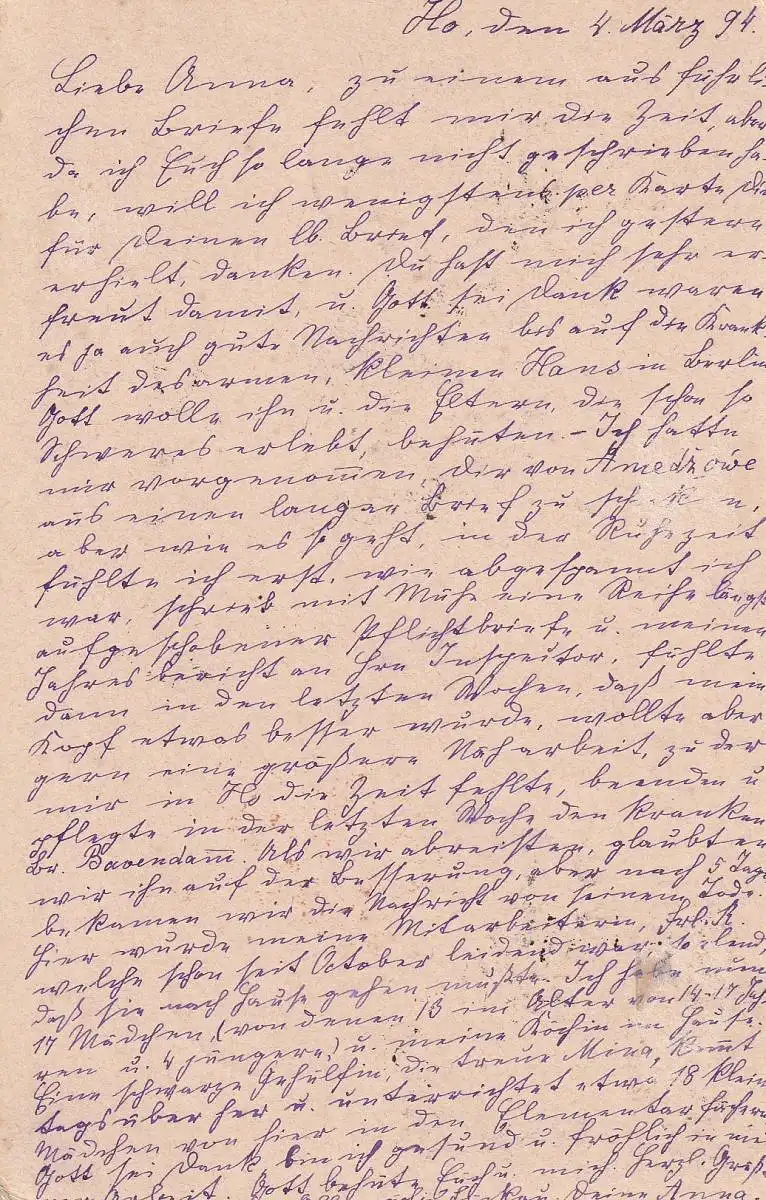 Ho, den 4. März 94.
Liebe Anna, zu einem ausführli-
chen Briefe fehlt mir die Zeit, aber
da ich Euch so lange nicht geschrieben ha-
be, will ich wenigstens per Karte Dir
für Deinen lb. Brief, den ich gestern
erhielt, danken. Du hast mich sehr er-
freut damit, u. Gott sei Dank waren
es ja auch gute Nachrichten bis auf die Krank-
heit des armen, kleinen Hans in Berlin
Gott wolle ihn u. die Eltern, die schon so
Schweres erlebt, behüten. – Ich hatte
mir vorgenommen, Dir von Amedzowe
aus einen langen Brief zu
aber wie es so geht, in der Ruhezeit
fühlte ich erst, wie abgespannt ich
war, schrieb mit Mühe eine Reihe längst
aufgeschobener Pflichtbriefe u. meinen
Jahresbericht an Hrn Inspector, fühlte
dann in den letzten Wochen, daß mein
Kopf etwas besser wurde, wollte aber
gern eine größere Näharbeit, zu der
mir in Ho die Zeit fehlte, beenden u
pflegte in der letzten Woche den kranken
Br. Bavendam̅. Als wir abreisten, glaubten
wir ihn auf der Besserung, aber nach 5 Tage
bekamen wir die Nachricht von seinem Tode.
Hier wurde meine Mitarbeiterin, Frl. K.
welche schon seit October leidend war, so elend,
daß sie nach Hause gehen mußte. Ich habe nun
17 Mädchen, (von denen 13 im Alter von 14-17 Jah-
ren u. 4 jüngere,) u. meine Köchin im Hause.
Eine schwarze Gehülfin, die treue Mina, kom̅t
tagsüber her u. unterrichtet etwa 18 kleine
Mädchen von hier in den Elementarfächern
Gott sei Dank bin ich gesund u. fröhlich in mei-
ner Arbeit. Gott behüte Euch u. mich. Herzl. Grüße
Deine Anna.